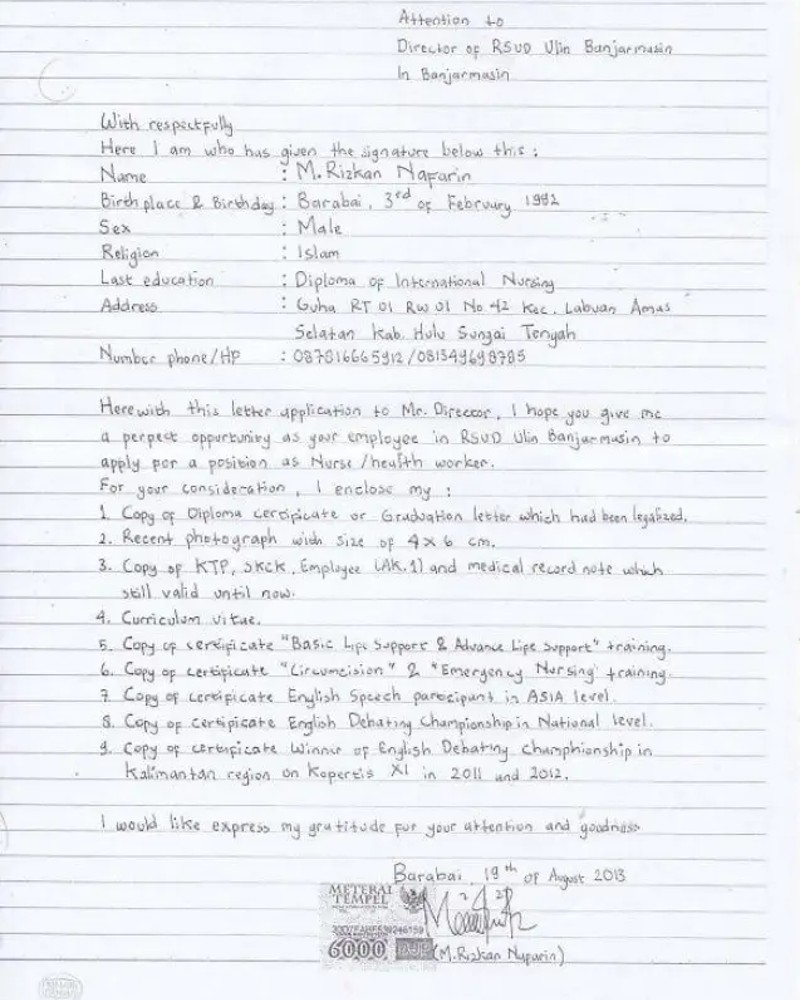 Attention to
Director of RSUD Ulin Banjarmasin
In Banjarmasin
With respectfully
Here I am who has given the signature below this :
Name : M. Rizkan Naparin
Birth place & Birthday : Barabai, 3rd of February 1992
Sex : Male
Religion : Islam
Last education : Diploma of International Nursing
Address : Guha RT 01 RW 01 No 42 Kec. Labuan Amas
Selatan Kab. Hulu Sungai Tengah
Number phone/HP : 087816665912/081349698785
Herewith this letter application to Mr. Director, I hope you give me
a perpect oppurtunity as your employee in RSUD Ulin Banjarmasin to
apply for a position as Nurse /health worker.
For your consideration, I enclose my :
1. Copy of Diploma certificate or Graduation letter which had been legalized.
2. Recent photograph with size of 4 x 6 cm.
3. Copy of KTP, SKCK, Employee (AK.1) and medical record note which
still valid until now.
4. Curriculum vitae.
5. Copy of certificate "Basic Life Support & Advance Life Support" training.
6. Copy of certificate "Circumcision" & "Emergency Nursing" training.
7. Copy of certificate English Speech participant in ASIA level.
8. Copy of certificate English Debating Championship in National level.
9. Copy of certificate Winner of English Debating champhionship in
Kalimantan region on Kopertis XI in 2011 and 2012.
I would like express my gratitude for your attention and goodness
Barabai, 19th of August 2013
METERAI
TEMPEL
6000 DJP
(M. Rizkan Naparin)